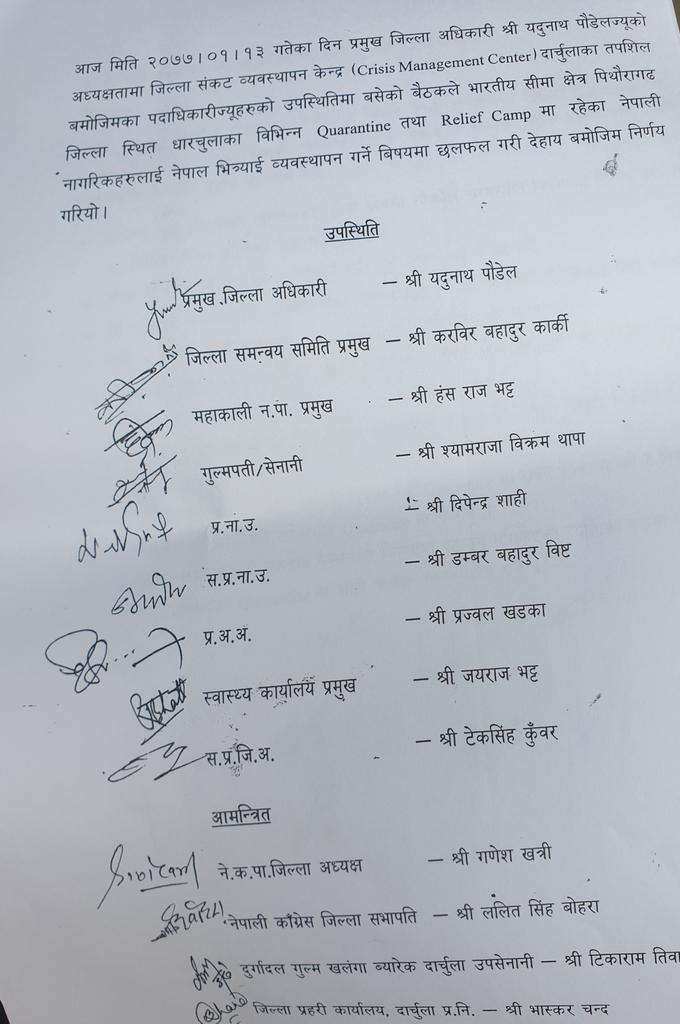 आज मिति २०७७।०१।१३ गतेका दिन प्रमुख जिल्ला अधिकारी श्री यदुनाथ पौडेलज्यूको
अध्यक्षतामा जिल्ला संकट व्यवस्थापन केन्द्र (Crisis Management Center) दार्चुलाका तपशिल
बमोजिमका पदाधिकारीज्यूहरुको उपस्थितिमा बसेको बैठकले भारतीय सीमा क्षेत्र पिथौरागढ
जिल्ला स्थित धारचुलाका विभिन्न Quarantine तथा Relief Camp मा रहेका नेपाली
नागरिकहरुलाई नेपाल भित्र्याई व्यवस्थापन गर्ने बिषयमा छलफल गरी देहाय बमोजिम निर्णय
गरियो।
उपस्थिति
प्रमुख जिल्ला अधिकारी – श्री यदुनाथ पौडेल
जिल्ला समन्वय समिति प्रमुख – श्री करविर बहादुर कार्की
महाकाली न.पा. प्रमुख – श्री हंस राज भट्ट
गुल्मपती/सेनानी – श्री श्यामराजा विक्रम थापा
प्र.ना.उ. – श्री दिपेन्द्र शाही
स.प्र.ना.उ. – श्री डम्बर बहादुर विष्ट
प्र.अ.अ. – श्री प्रज्वल खडका
स्वास्थ्य कार्यालय प्रमुख – श्री जयराज भट्ट
स.प्र.जि.अ. – श्री टेकसिंह कुँवर
आमन्त्रित
ने.क.पा.जिल्ला अध्यक्ष – श्री गणेश खत्री
नेपाली काँग्रेस जिल्ला सभापति – श्री ललित सिंह बोहरा
दुर्गादल गुल्म खलंगा ब्यारेक दार्चुला उपसेनानी – श्री टिकाराम तिवा
जिल्ला प्रहरी कार्यालय, दार्चुला प्र.नि. – श्री भास्कर चन्द